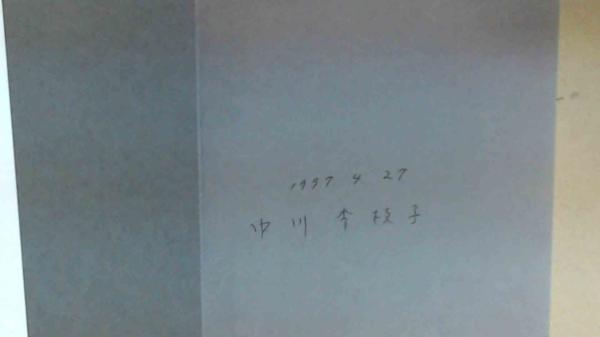 1997 4 27
中川李枝子